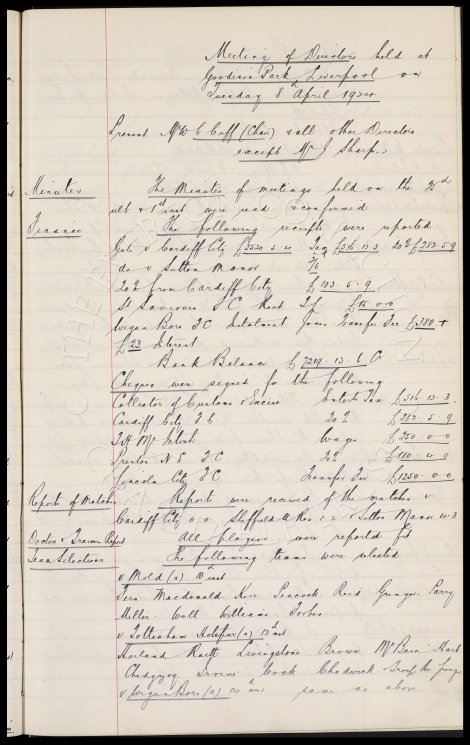 Meeting of Directors held at
Goodison Park, Liverpool on
Tuesday 8th April 1924
Present Mr W C Cuff (Chair) & all other Directors
except Mr J Sharp.
Minutes The Minutes of meetings held on the 25th
ult & 1st inst were read & confirmed
Finance The following receipts were reported
Gate v Cardiff City £2520.5.11 Tax £516.13.3 20% £282.5.9
do v Sutton Manor
20% from Cardiff City £103.5.9
St Saviours F C Rent £15.0.0
Wigan Boro F C Instalment Jones Transfer Fee £380 +
£23 Interest
Bank Balance £7219.13.6 Cr
Cheques were signed for the following
Collector of Customs & Excise Ents Tax £516.13.3
Cardiff City F C 20% £282.5.9
Wages £250.0.0
Preston N E F C 20% £180.4.0
Lincoln City F C Transfer Fee £1250.0.0
Reports of Matches Reports were received of the matches v
Cardiff City 0-0 Sheffield U Res 1-2 & Sutton Manor 4-3
Doctor & Trainers Report All players were reported fit
Team Selections The following teams were selected
v Mold (a) 10th inst
Fern Macdonald Kerr Peacock Reid Grundy Parry
Miller Wall Williams Forbes
v Tottenham Hotspur (a) 12th inst
Harland Raitt Livingstone Brown McBain Hart
Chedgzoy Irvine Cock Chadwick
v Wigan Boro (a) 14th inst same as above